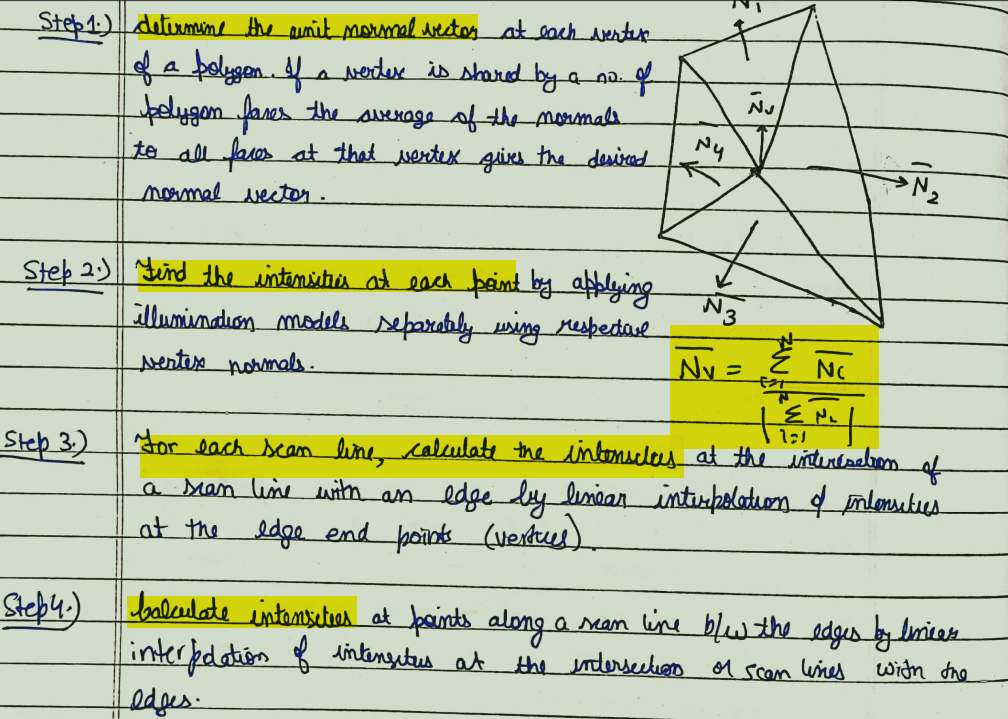 Step 1.) determine the unit normal vector at each vertex
of a polygon. If a vertex is shared by a no. of
polygon faces the average of the normals
to all faces at that vertex gives the desired
normal vector.
N̅1
N̅v
N̅4
N̅2
N̅3
Step 2.) Find the intensities at each point by applying
illumination models separately using respective
vertex normals.
N̅v = Σ_{i=1}^{N} N̅i / |Σ_{i=1}^{N} N̅i|
Step 3.) For each scan line, calculate the intensities at the intersection of
a scan line with an edge by linear interpolation of intensities
at the edge end points (vertices).
Step 4.) Calculate intensities at points along a scan line b/w the edges by linear
interpolation of intensities at the intersection of scan lines with the
edges.